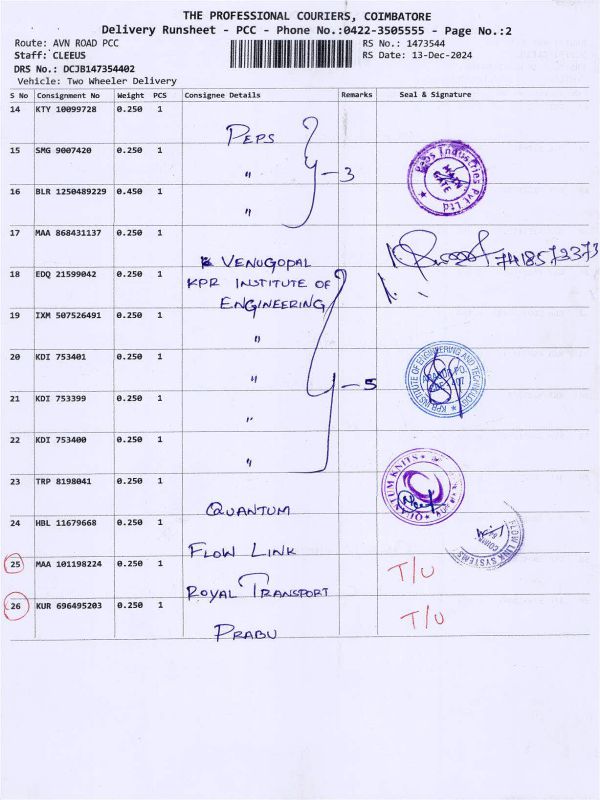 THE PROFESSIONAL COURIERS, COIMBATORE
Delivery Runsheet - PCC - Phone No.:0422-3505555 - Page No.:2
Route: AVN ROAD PCC RS No.: 1473544
Staff: CLEEUS RS Date: 13-Dec-2024
DRS No.: DCJB147354402
Vehicle: Two Wheeler Delivery
S No Consignment No Weight PCS Consignee Details Remarks Seal & Signature
14 KTY 10099728 0.250 1 PEPS
15 SMG 9007420 0.250 1 " - 3 Peps Industries Pvt Ltd MAIN GATE
16 BLR 1250489229 0.450 1 "
17 MAA 868431137 0.250 1 VENUGOPAL 7418573373
18 EDQ 21599042 0.250 1 KPR INSTITUTE OF
ENGINEERING
19 IXM 507526491 0.250 1 "
20 KDI 753401 0.250 1 " - 5 KPR INSTITUTE OF ENGINEERING AND TECHNOLOGY
21 KDI 753399 0.250 1 "
22 KDI 753400 0.250 1 "
23 TRP 8198041 0.250 1 QUANTUM QUANTUM KNITS
24 HBL 11679668 0.250 1 FLOW LINK FLOW LINK SYSTEMS
25 MAA 101198224 0.250 1 ROYAL TRANSPORT T/U
26 KUR 696495203 0.250 1 PRABU T/U